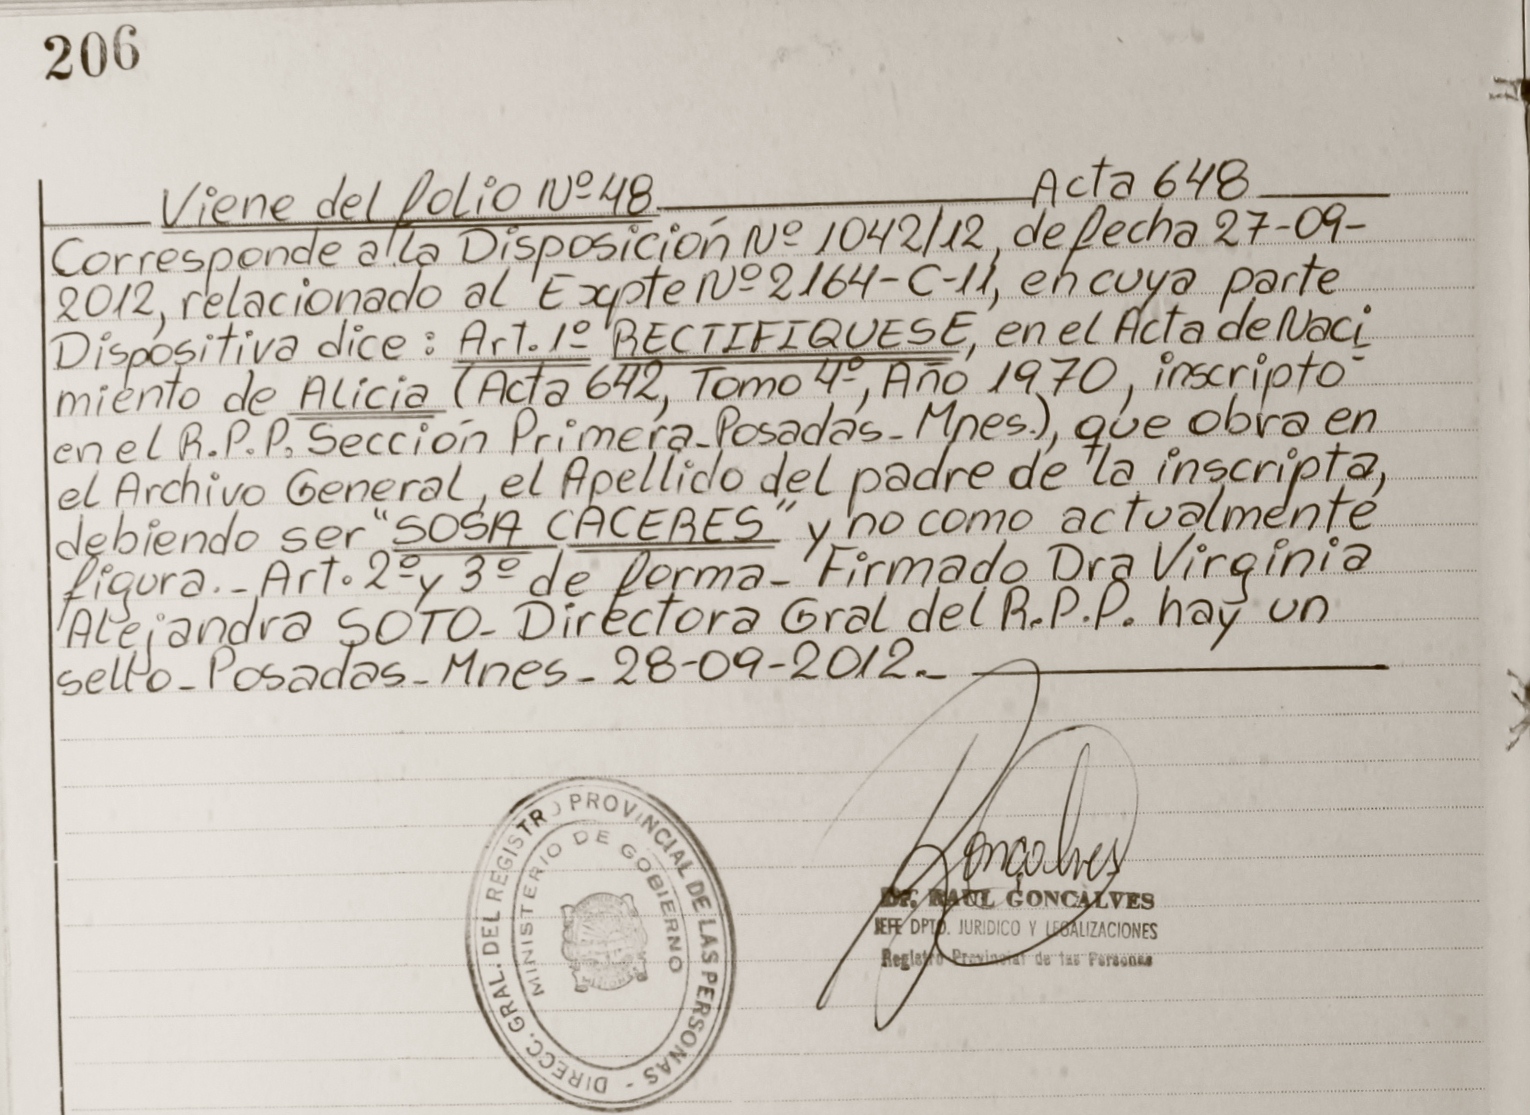 206
Viene del folio Nº 48 Acta 648
Corresponde a la Disposición Nº 1042/12, de fecha 27-09-
2012, relacionado al Expte Nº 2164-C-11, en cuya parte
Dispositiva dice: Art. 1º RECTIFIQUESE, en el Acta de Naci
miento de Alicia (Acta 642, Tomo 4º, Año 1970, inscripto
en el R.P.P. Sección Primera-Posadas-Mnes.), que obra en
el Archivo General, el Apellido del padre de la inscripta,
debiendo ser "SOSA CACERES" y no como actualmente
figura.- Art. 2º y 3º de forma- Firmado Dra Virginia
Alejandra SOTO- Directora Gral del R.P.P. hay un
sello- Posadas- Mnes- 28-09-2012.-
DIRECC. GRAL. DEL REGISTRO PROVINCIAL DE LAS PERSONAS -
MINISTERIO DE GOBIERNO
Goncalves
Dr. RAUL GONCALVES
JEFE DPTO. JURIDICO Y LEGALIZACIONES
Registro Provincial de las Personas